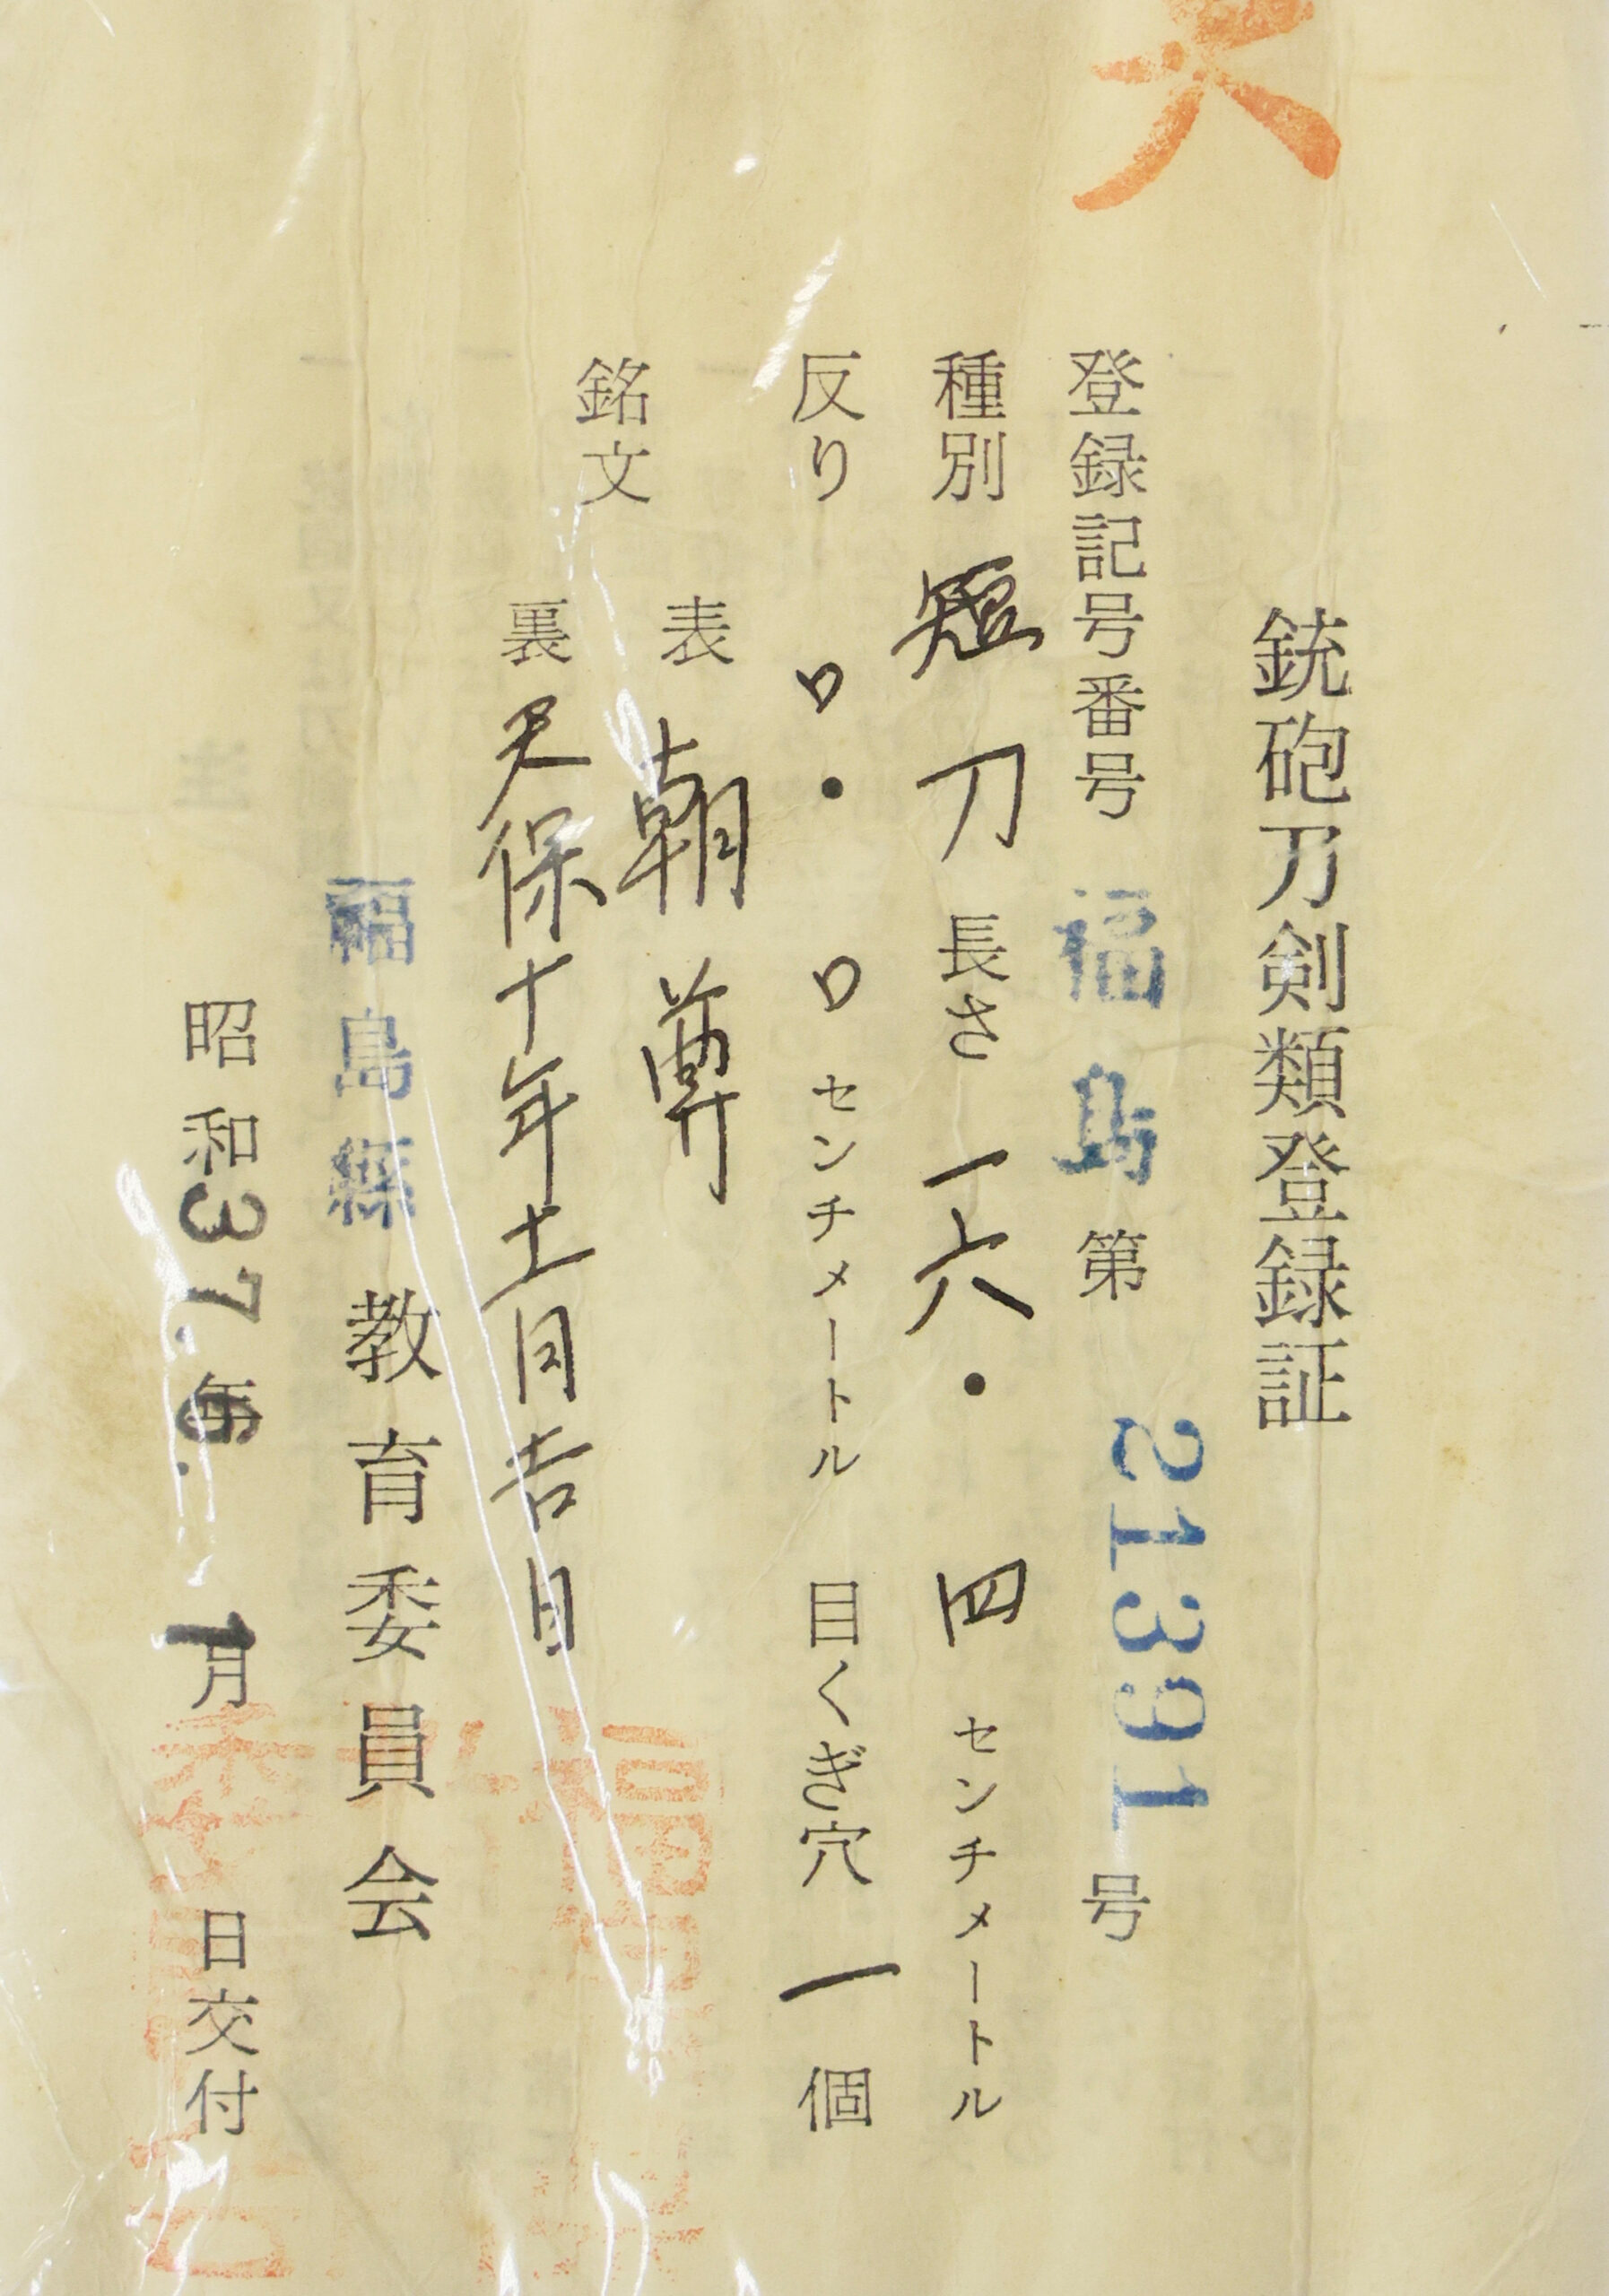 銃砲刀剣類登録証
登録記号番号 福島 第 21391 号
種別 短刀 長さ 一六・四 センチメートル
反り 〇・〇 センチメートル 目くぎ穴 一 個
銘文
表 朝尊
裏 天保十年十一月吉日
福島縣 教育委員会
昭和37.年6. 1月 日交付